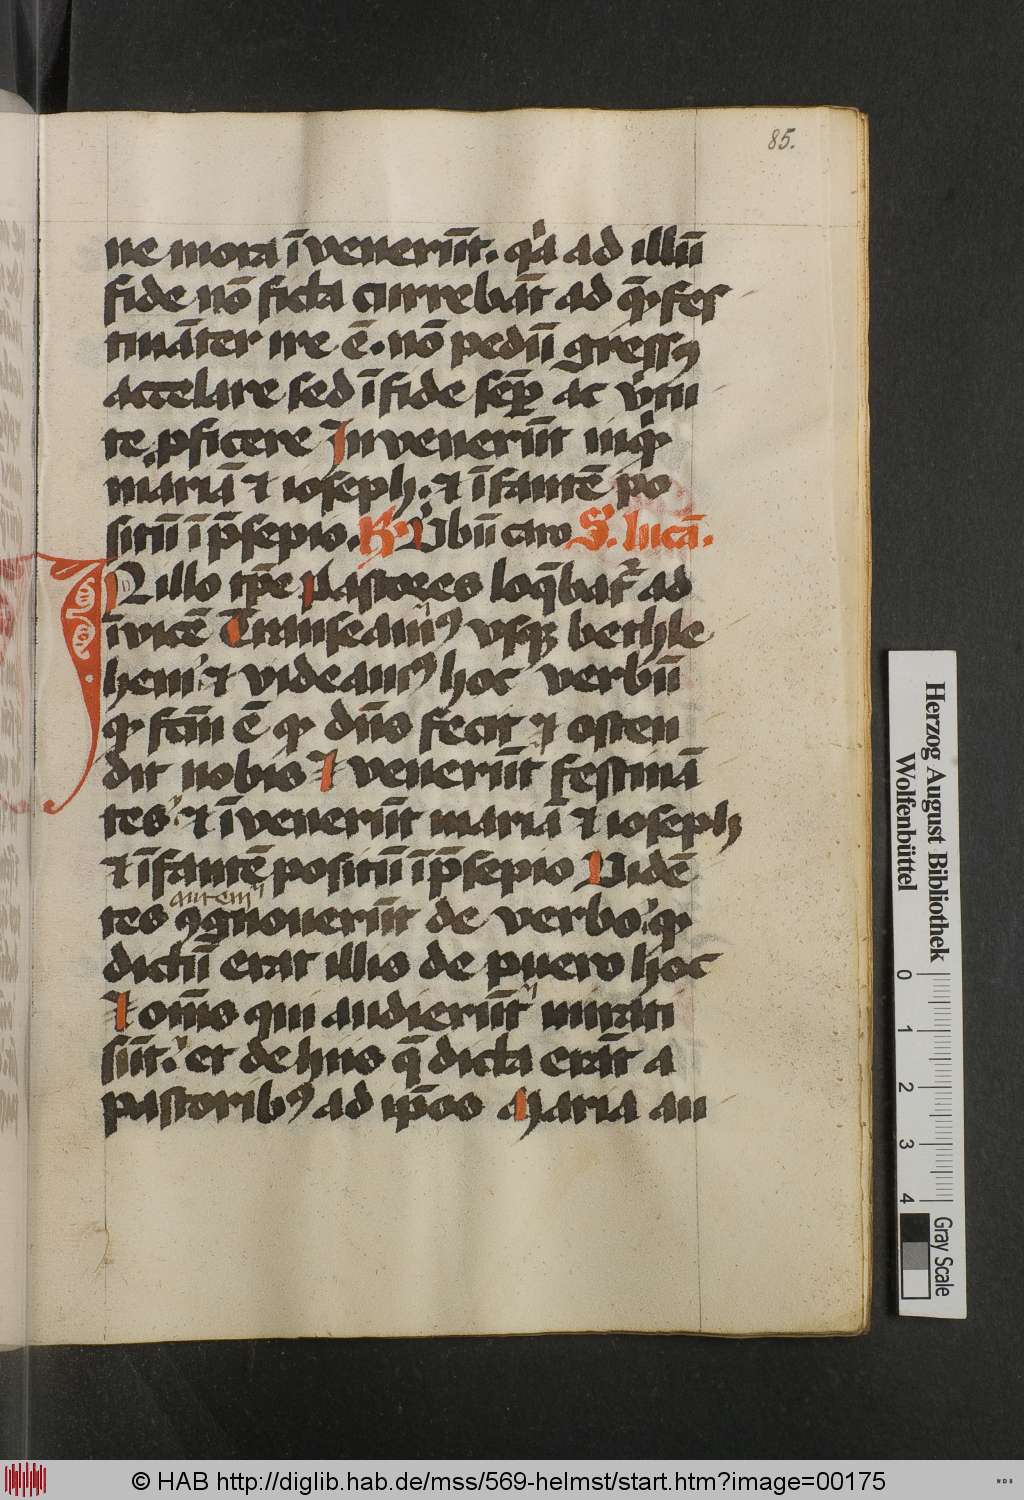 85.
ne mora īveneru̅t. qͥa ad illū
fide nō ficta currebāt ad q̄ꝫ fes
tināter ire ē. nō pedū gressꝰ
accelare sed ī fide semp̄ ac v̓tu
te ꝓficere Inveneru̅t inqͥ
mariā ⁊ ioseph. ⁊ īfantē po
sitū ī p̄sepio. R. Vbū caro S. lucā.
IN illo tp̄e Pastores loq̄bāt᷑ ad
īvicē Transeamꝰ vsqꝫ bethle
hem ⁊ videamꝰ hoc verbū
qᷣ fctm̄ ē qᷣ dn̄s fecit ⁊ osten
dit nobis ⁊ veneru̅t festinā
tes ⁊ īveneru̅t mariā ⁊ ioseph
⁊ īfantē positū ī p̄sepio Vidē
tes autem ꝯgnoveru̅t de verbo qᷣ
dictū erat illis de puero hoc
⁊ om̄s qui audieru̅t mirati
su̅t. et de hiis q̄ dicta erāt a
pastoribꝰ ad ip̄os Maria au
Herzog August Bibliothek
Wolfenbüttel
0 1 2 3 4
Gray Scale
© HAB http://diglib.hab.de/mss/569-helmst/start.htm?image=00175